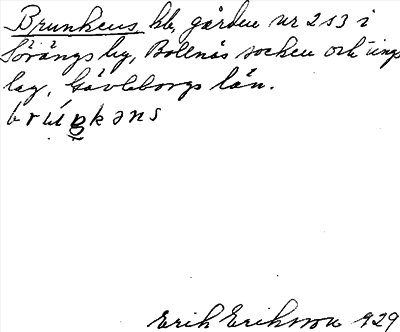 Brunkens hb, gården nr 2 s3 i
Sörängs by, Bollnäs socken och tings
lag, Gävleborgs län.
brúŋkəns
Erik Eriksson 1929